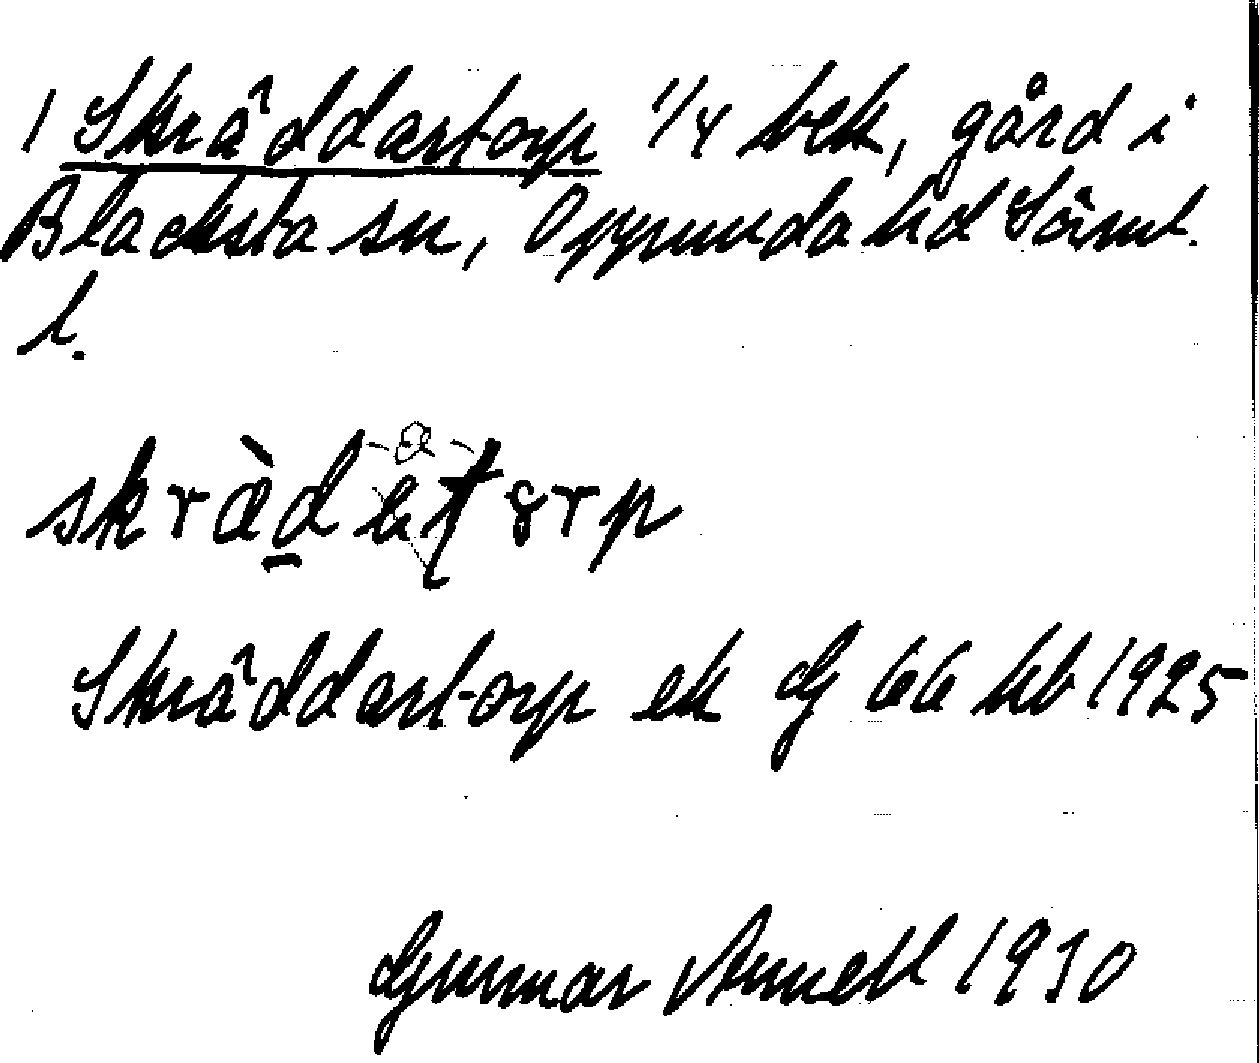 1 Skräddartorp 1/4 bek, gård i
Blacksta sn, Oppunda hd Sörml.
l.
skrædatorp
Skräddartorp ek G 66 hb 1925
Gunnar Arnell 1930